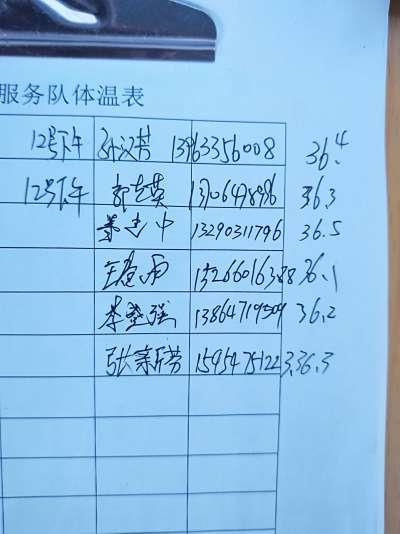 服务队体温表
12号下午 孙汉芳 13963356008 36.4
12号下午 郭志英 13706498986 36.3
董志中 13290311796 36.5
王 雨 15266016388 36.1
李登强 13864719509 36.2
张新芳 15954751223 36.3